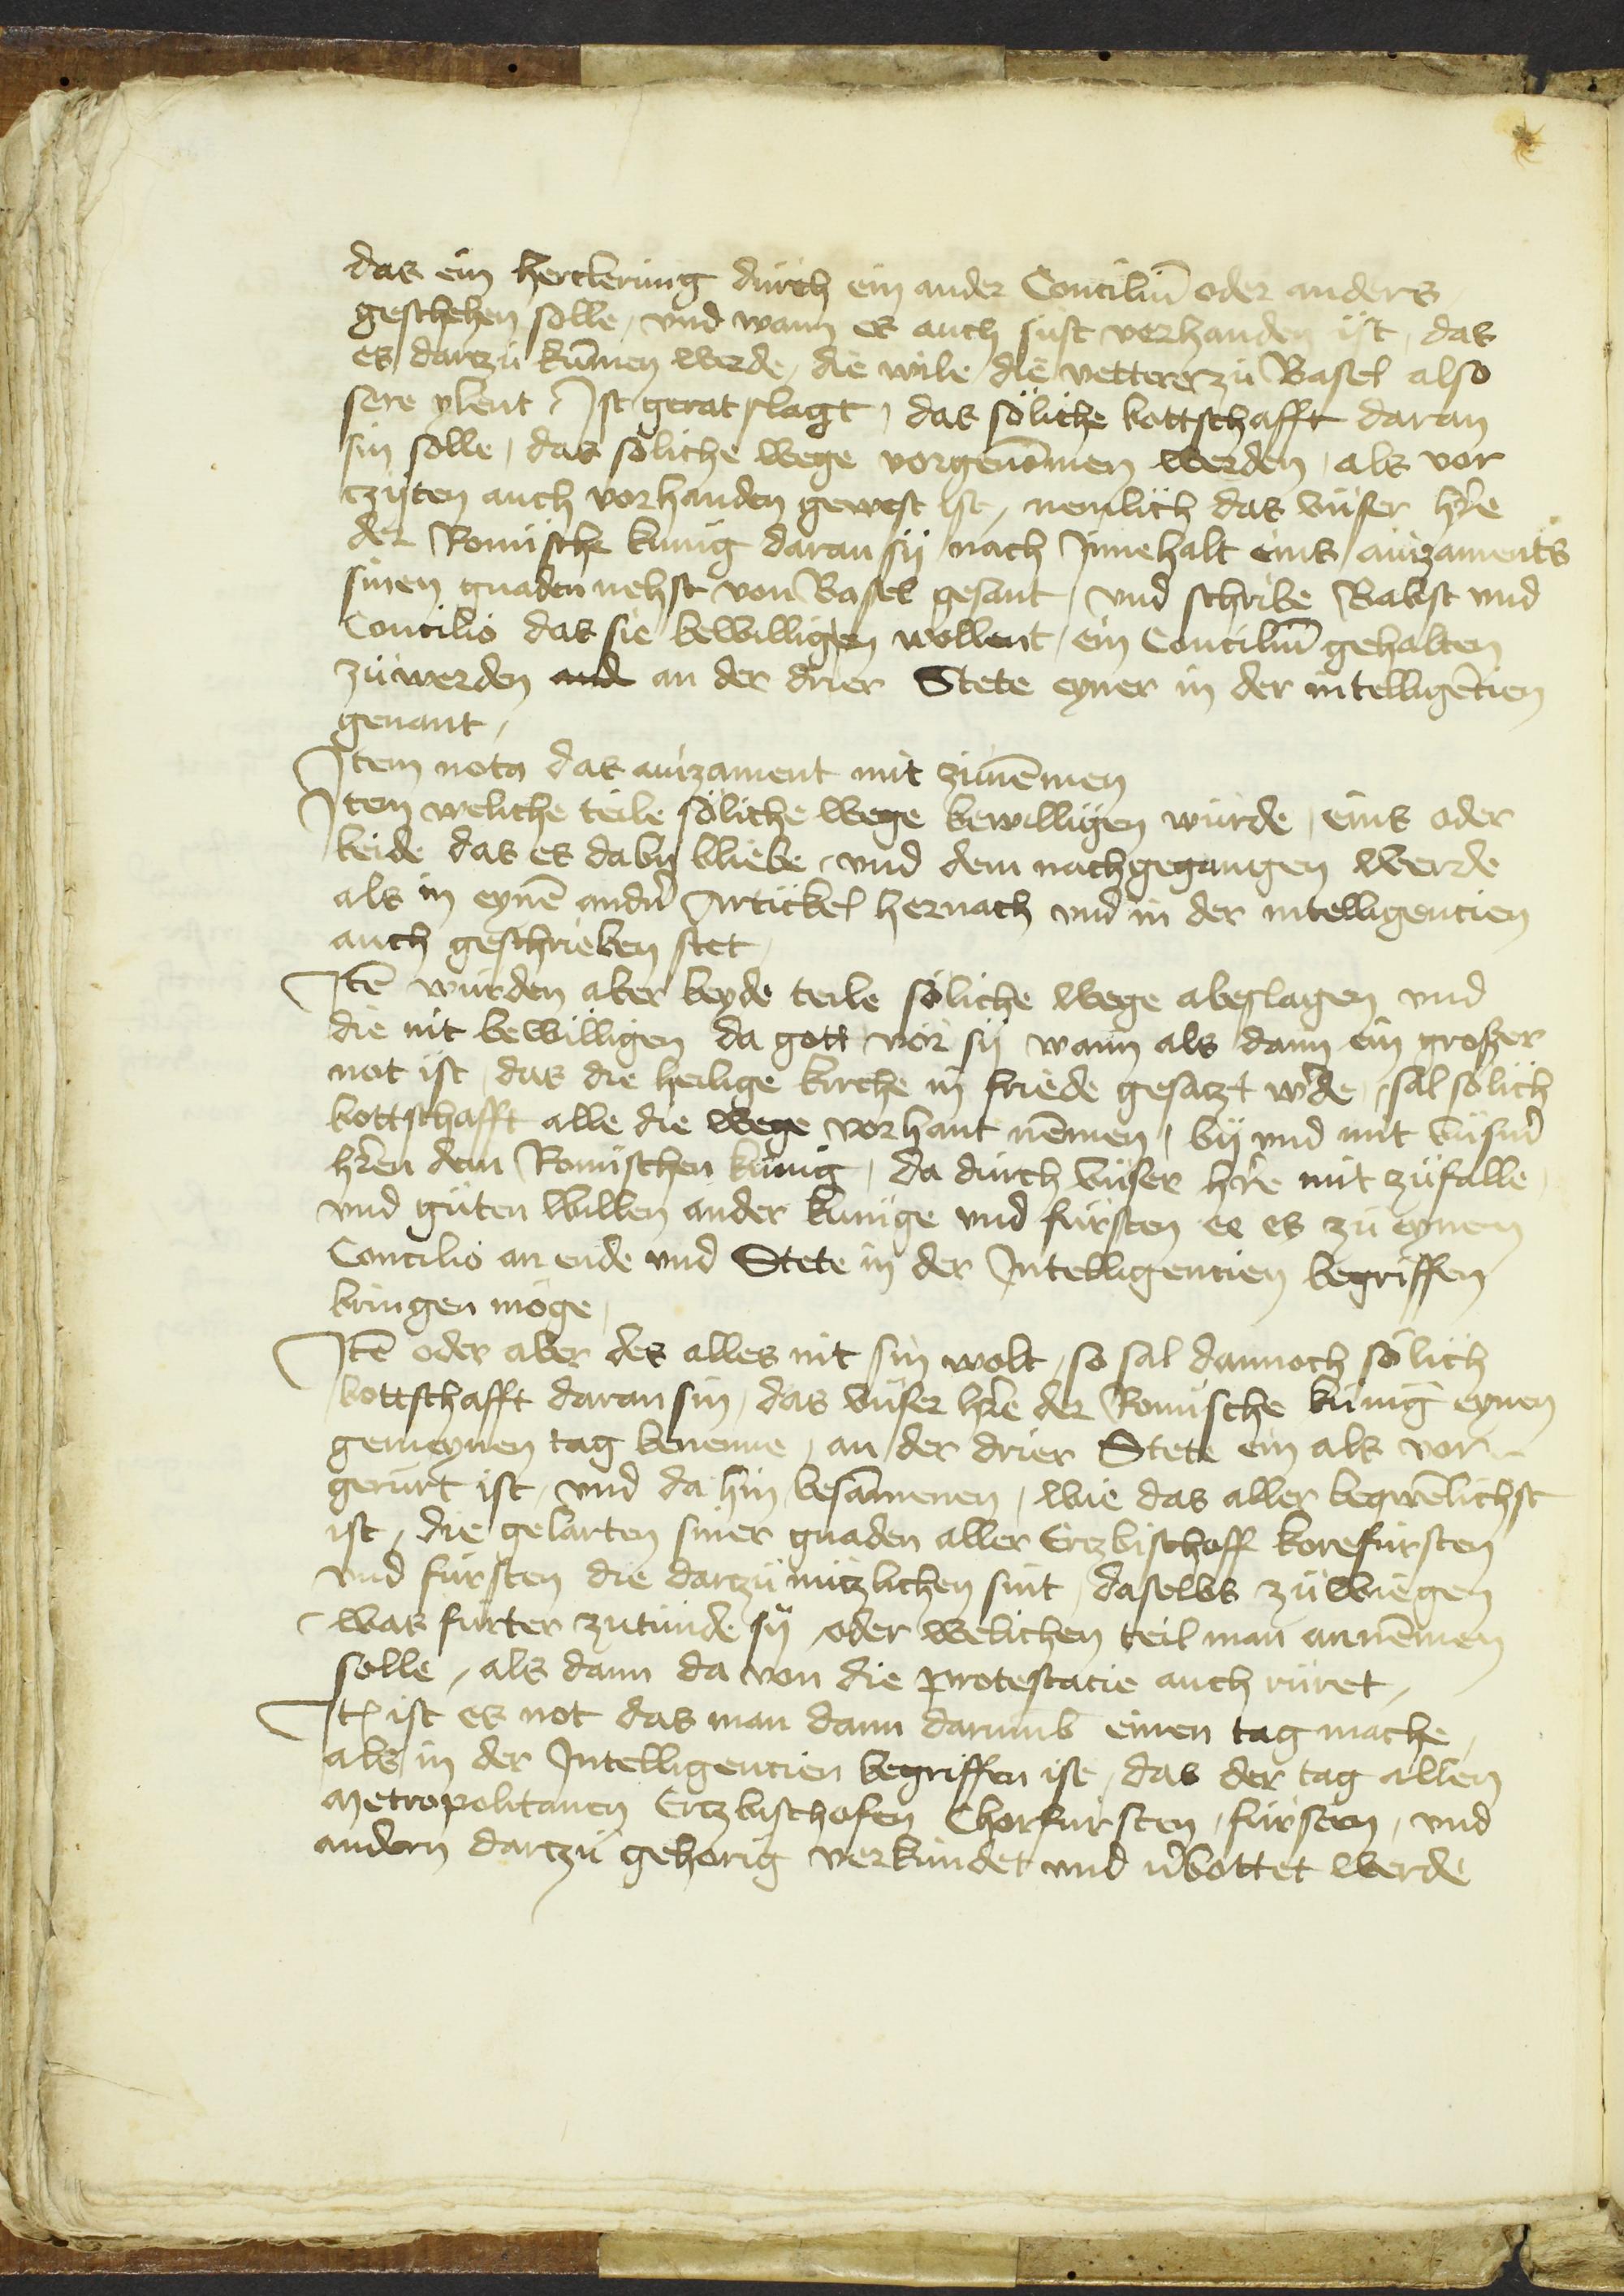 das ein herckerung durch ein ander Conciliū oder anders
geschehen solle, vnd wann es auch sust vorhanden ist, das
es dartzu kūmen werde, die wile die vetterer zu Basel also
sere ylent, Ist geratslagt, das söliche bottschafft daran
sin solle, das söliche wege vorgenōmen werden, als vor
czyten auch vorhanden gewest ist, nemlich das vnser hr̄e
der Romische kunig daran sij nach Innehalt eins auizaments
sinen gnaden nehst von Basel gesant, vnd schribe Babst vnd
Concilio das sie bewilligen wollent, ein Conciliū gehalten
zu werden an der drier Stete eyner in der intelligēcien
genant,
Item nota das auizament mit zunēmen
Item weliche teile söliche wege bewilligen würde, eins oder
beide das es daby bliebe, vnd dem nachgegangen werde
als in eynē andn̄ Artickel hernach vnd in der intelligencien
auch geschrieben stet,
Itē würden aber beyde teile söliche wege abeslagen vnd
die nit bewilligen da gott vor sij wann als dann ein großer
not ist, das die heilige kirche in friede gesatzt w̄de, sal sölich
bottschafft alle die wege vorhant nēmen, bij vnd mit vnsn̄
hr̄en dem Romischen kunig, da durch vnser hr̄e mit zufalle
vnd guten willen ander kunige vnd fursten ee es zu eynem
Concilio an ende vnd Stete in der Intelligencien begriffen
bringen möge,
Itē oder aber des alles nit sin wolt, so sal dannoch sölich
bottschafft daran sin, das vnser hr̄e der Romische kunig eynen
gemeynen tag benenne, an der drier Stete ein als vor
gerurt ist, vnd da hin besāmenen, wie das aller beqwēlichst
ist, die gelarten siner gnaden aller Ertzbischoff korefursten
vnd fursten die dartzu nützlichen sint, daselbs zu wiegen
was furter zutunde sij, oder welichen teil man annēmen
solle, als dann da von die protestacie auch ruret,
Itē ist es not das man dann darumb einen tag mache,
als in der Intelligencien begriffen ist, das der tag allen
Metropolitanen Ertzbischofen Chorfursten, fursten, vnd
andern dartzu gehorig verkundet vnd v̄bottet werde